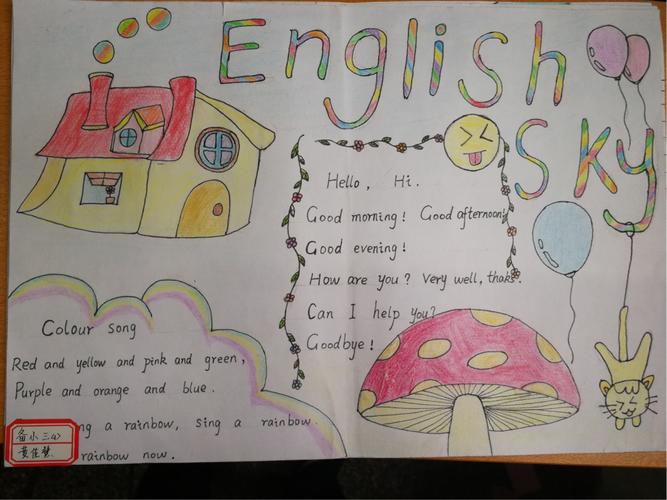 English
Sky
Hello, Hi.
Good morning! Good afternoon!
Good evening!
How are you? Very well, thaks.
Can I help you?
Goodbye!
Colour song
Red and yellow and pink and green,
Purple and orange and blue.
ng a rainbow, sing a rainbow.
rainbow now.
备小三(4)